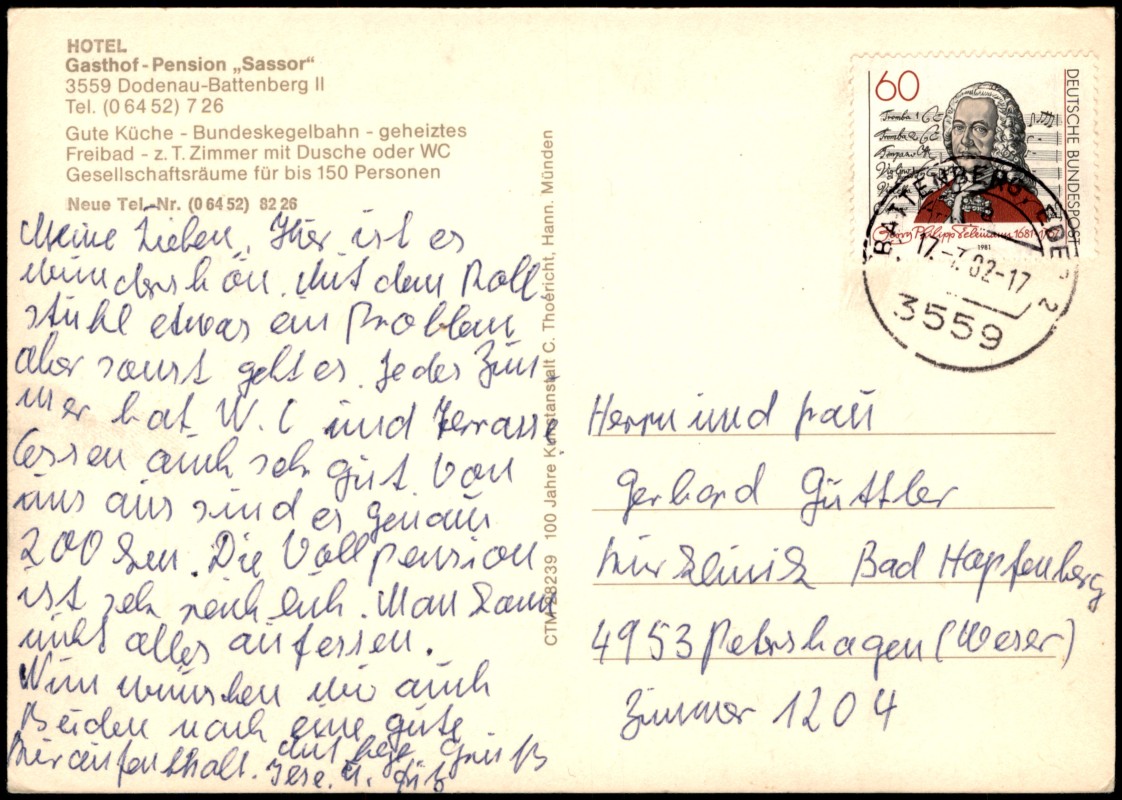 HOTEL
Gasthof-Pension „Sassor“
3559 Dodenau-Battenberg II
Tel. (0 64 52) 7 26
Gute Küche - Bundeskegelbahn - geheiztes
Freibad - z. T. Zimmer mit Dusche oder WC
Gesellschaftsräume für bis 150 Personen
Neue Tel.-Nr. (0 64 52) 82 26
Meine Lieben, Hier ist es
wunderschön. Mit dem Roll
stuhl etwas ein Problem
aber sonst geht es. Jedes Zim-
mer hat W.C und Terrasse
Essen auch sehr gut. Von
uns aus sind es genau
200 km. Die Vollpension
ist sehr reichlich. Man kann
nicht alles aufessen.
Nun wünschen wir auch
Beiden noch eine gute
Kuraufenthalt.
Gruß
u.
CTM 28239 100 Jahre Kunstanstalt C. Thoericht, Hann. Münden
60
DEUTSCHE BUNDESPOST
Tromba 1
Tromba 2
Georg Philipp Telemann 1681-1767
1981
BATTENBERG, EDER 2
17.-7.82-17
3559
Herrn und Frau
Gerhard Güttler
Kurklinik Bad Hopfenberg
4953 Petershagen (Weser)
Zimmer 1204